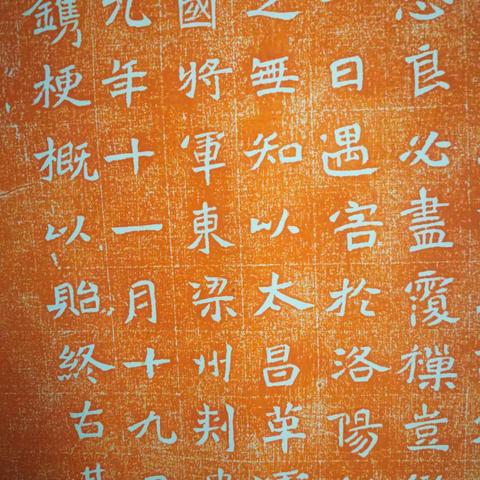 良必盡覆禪豈
日遇害於洛陽
之無知以太昌革
國將軍東梁州刺
九年十一月十九
鐫梗概以貽終古其